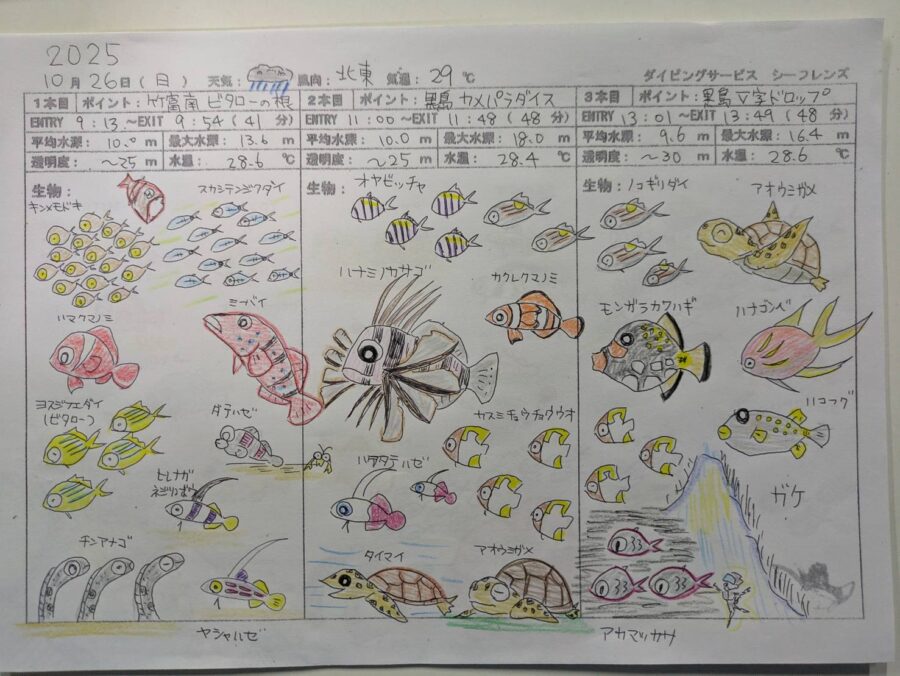 2025
10月26日(日) 天気: 風向: 北東 気温: 29℃ ダイビングサービス シーフレンズ
1本目 ポイント: 竹富南 ビタローの根
ENTRY 9:13 ~EXIT 9:54 (41 分)
平均水深: 10.0 m 最大水深: 13.6 m
透明度: ~25 m 水温: 28.6 ℃
生物:
キンメモドキ
スカシテンジクダイ
ハマクマノミ
ミーバイ
ヨスジフエダイ
(ビタロー)
ダテハゼ
ヒレナガ
ネジリンボウ
チンアナゴ
ヤシャハゼ
2本目 ポイント: 黒島 カメパラダイス
ENTRY 11:00 ~EXIT 11:48 (48 分)
平均水深: 10.0 m 最大水深: 18.0 m
透明度: ~25 m 水温: 28.4 ℃
生物:
オヤビッチャ
ハナミノカサゴ
カクレクマノミ
カスミチョウチョウウオ
ハタタテハゼ
タイマイ
アオウミガメ
3本目 ポイント: 黒島 V字ドロップ
ENTRY 13:01 ~EXIT 13:49 (48 分)
平均水深: 9.6 m 最大水深: 16.4 m
透明度: ~30 m 水温: 28.6 ℃
生物:
ノコギリダイ
アオウミガメ
モンガラカワハギ
ハナゴンベ
ハコフグ
ガケ
アカマツカサ